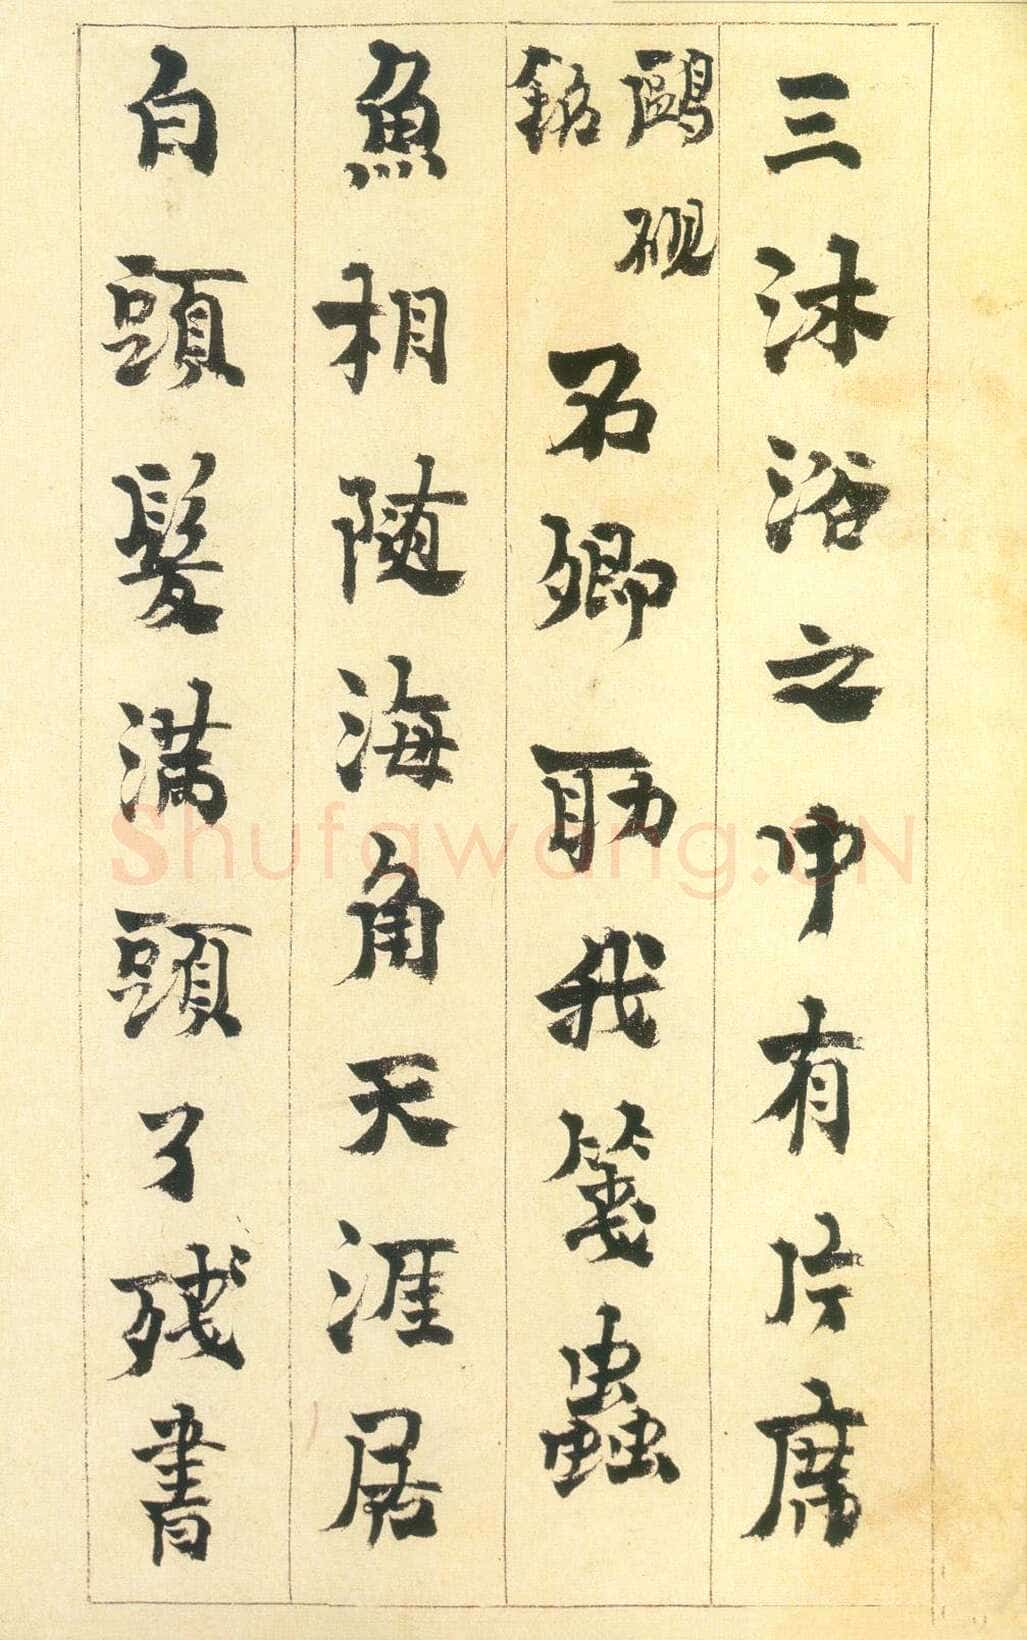 三沐浴之中有片席
鷗砚
銘
石卿助我箋蟲
魚相随海角天涯居
白頭髮满頭了残書
Shufawang.CN